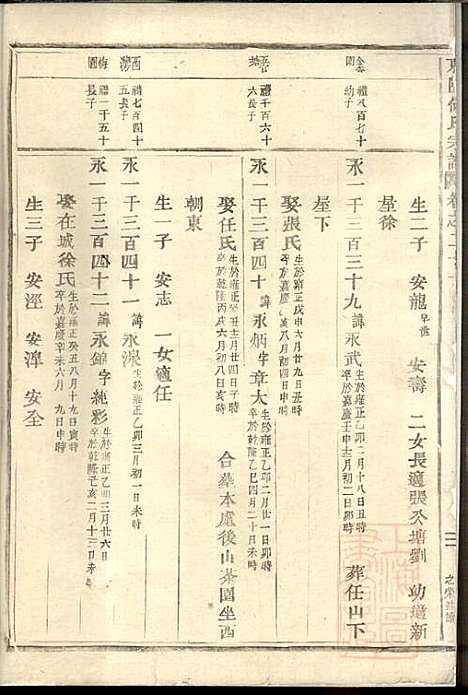 生二子 安龍早世 安壽 二女長適張公塘劉 幼適新
屋徐
金墓園 禮八百七十幼子
永一千三百三十九 諱永武 生於雍正乙卯二月十八日丑時 卒於嘉慶壬申十月初二日時 葬任山下
屋下
娶張氏 生於雍正戊申六月廿九日丑時 卒於嘉慶八月初九日時
禮千百六十六長子
永一千三百四十 諱永炳字章大 生於雍正乙卯二月廿一日未時 卒於乾隆乙巳四月二十日未時
娶任氏 生於雍正癸丑十二月廿四日子時 卒於乾隆丙戌六月初八日亥時 合葬本處後山茶園坐西
朝東
西灣 禮七百四十五長子
永一千三百四十一 諱永 生於雍正乙卯三月初一日未時
生一子 安志 一女適任
梅園 禮一千五十長子
永一千三百四十二 諱永錦字純彩 生於雍正乙卯三月廿六日 卒於乾隆己亥二月十三日亥時
娶在城徐氏 生於雍正癸丑八月十九日寅時 卒於嘉慶辛未六月九日申時
生三子 安涇 安濘 安全